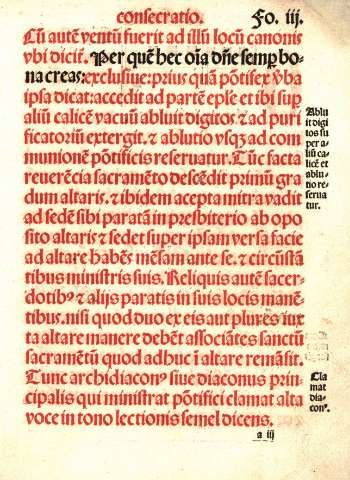 consecratio.
Fo. iij.
Cū autē ventū fuerit ad illū locū canonis
vbi dicit̄. Per quē hec oīa dn̄e semꝑ bo-
na creas: exclusiue: prius quā pōtifex v̄ba
ipsa dicat: accedit ad partē ep̄le et ibi sup
aliū calicē vacuū abluit digitos ⁊ ad puri
ficatoriū extergit. ⁊ ablutio vsqꝫ ad com
munionē pōtificis reseruatur. Tūc facta
reuerētia sacramēto descēdit primū gra
dum altaris. ⁊ ibidem acepta mitra vadit
ad sedē sibi paratā in presbiterio ab opo
sito altaris ⁊ sedet super ipsam versa facie
ad altare habēs mēsam ante se. ⁊ circūstā
tibus ministris suis. Reliquis autē sacer-
dotibꝰ ⁊ alijs paratis in suis locis manē
tibus. nisi quod duo ex eis aut plures iux
ta altare manere debēt associātes sanctū
sacramētū quod adhuc ī altare remāsit.
Tunc archidiaconꝰ siue diaconus prin-
cipalis qui ministrat pōtifici clamat alta
voce in tono lectionis semel dicens.
a iij
Ablu
it digi
tos su
per a-
liū ca-
licē et
ablu-
tio re-
serua
tur.
Cla
mat
dia-
conꝰ.